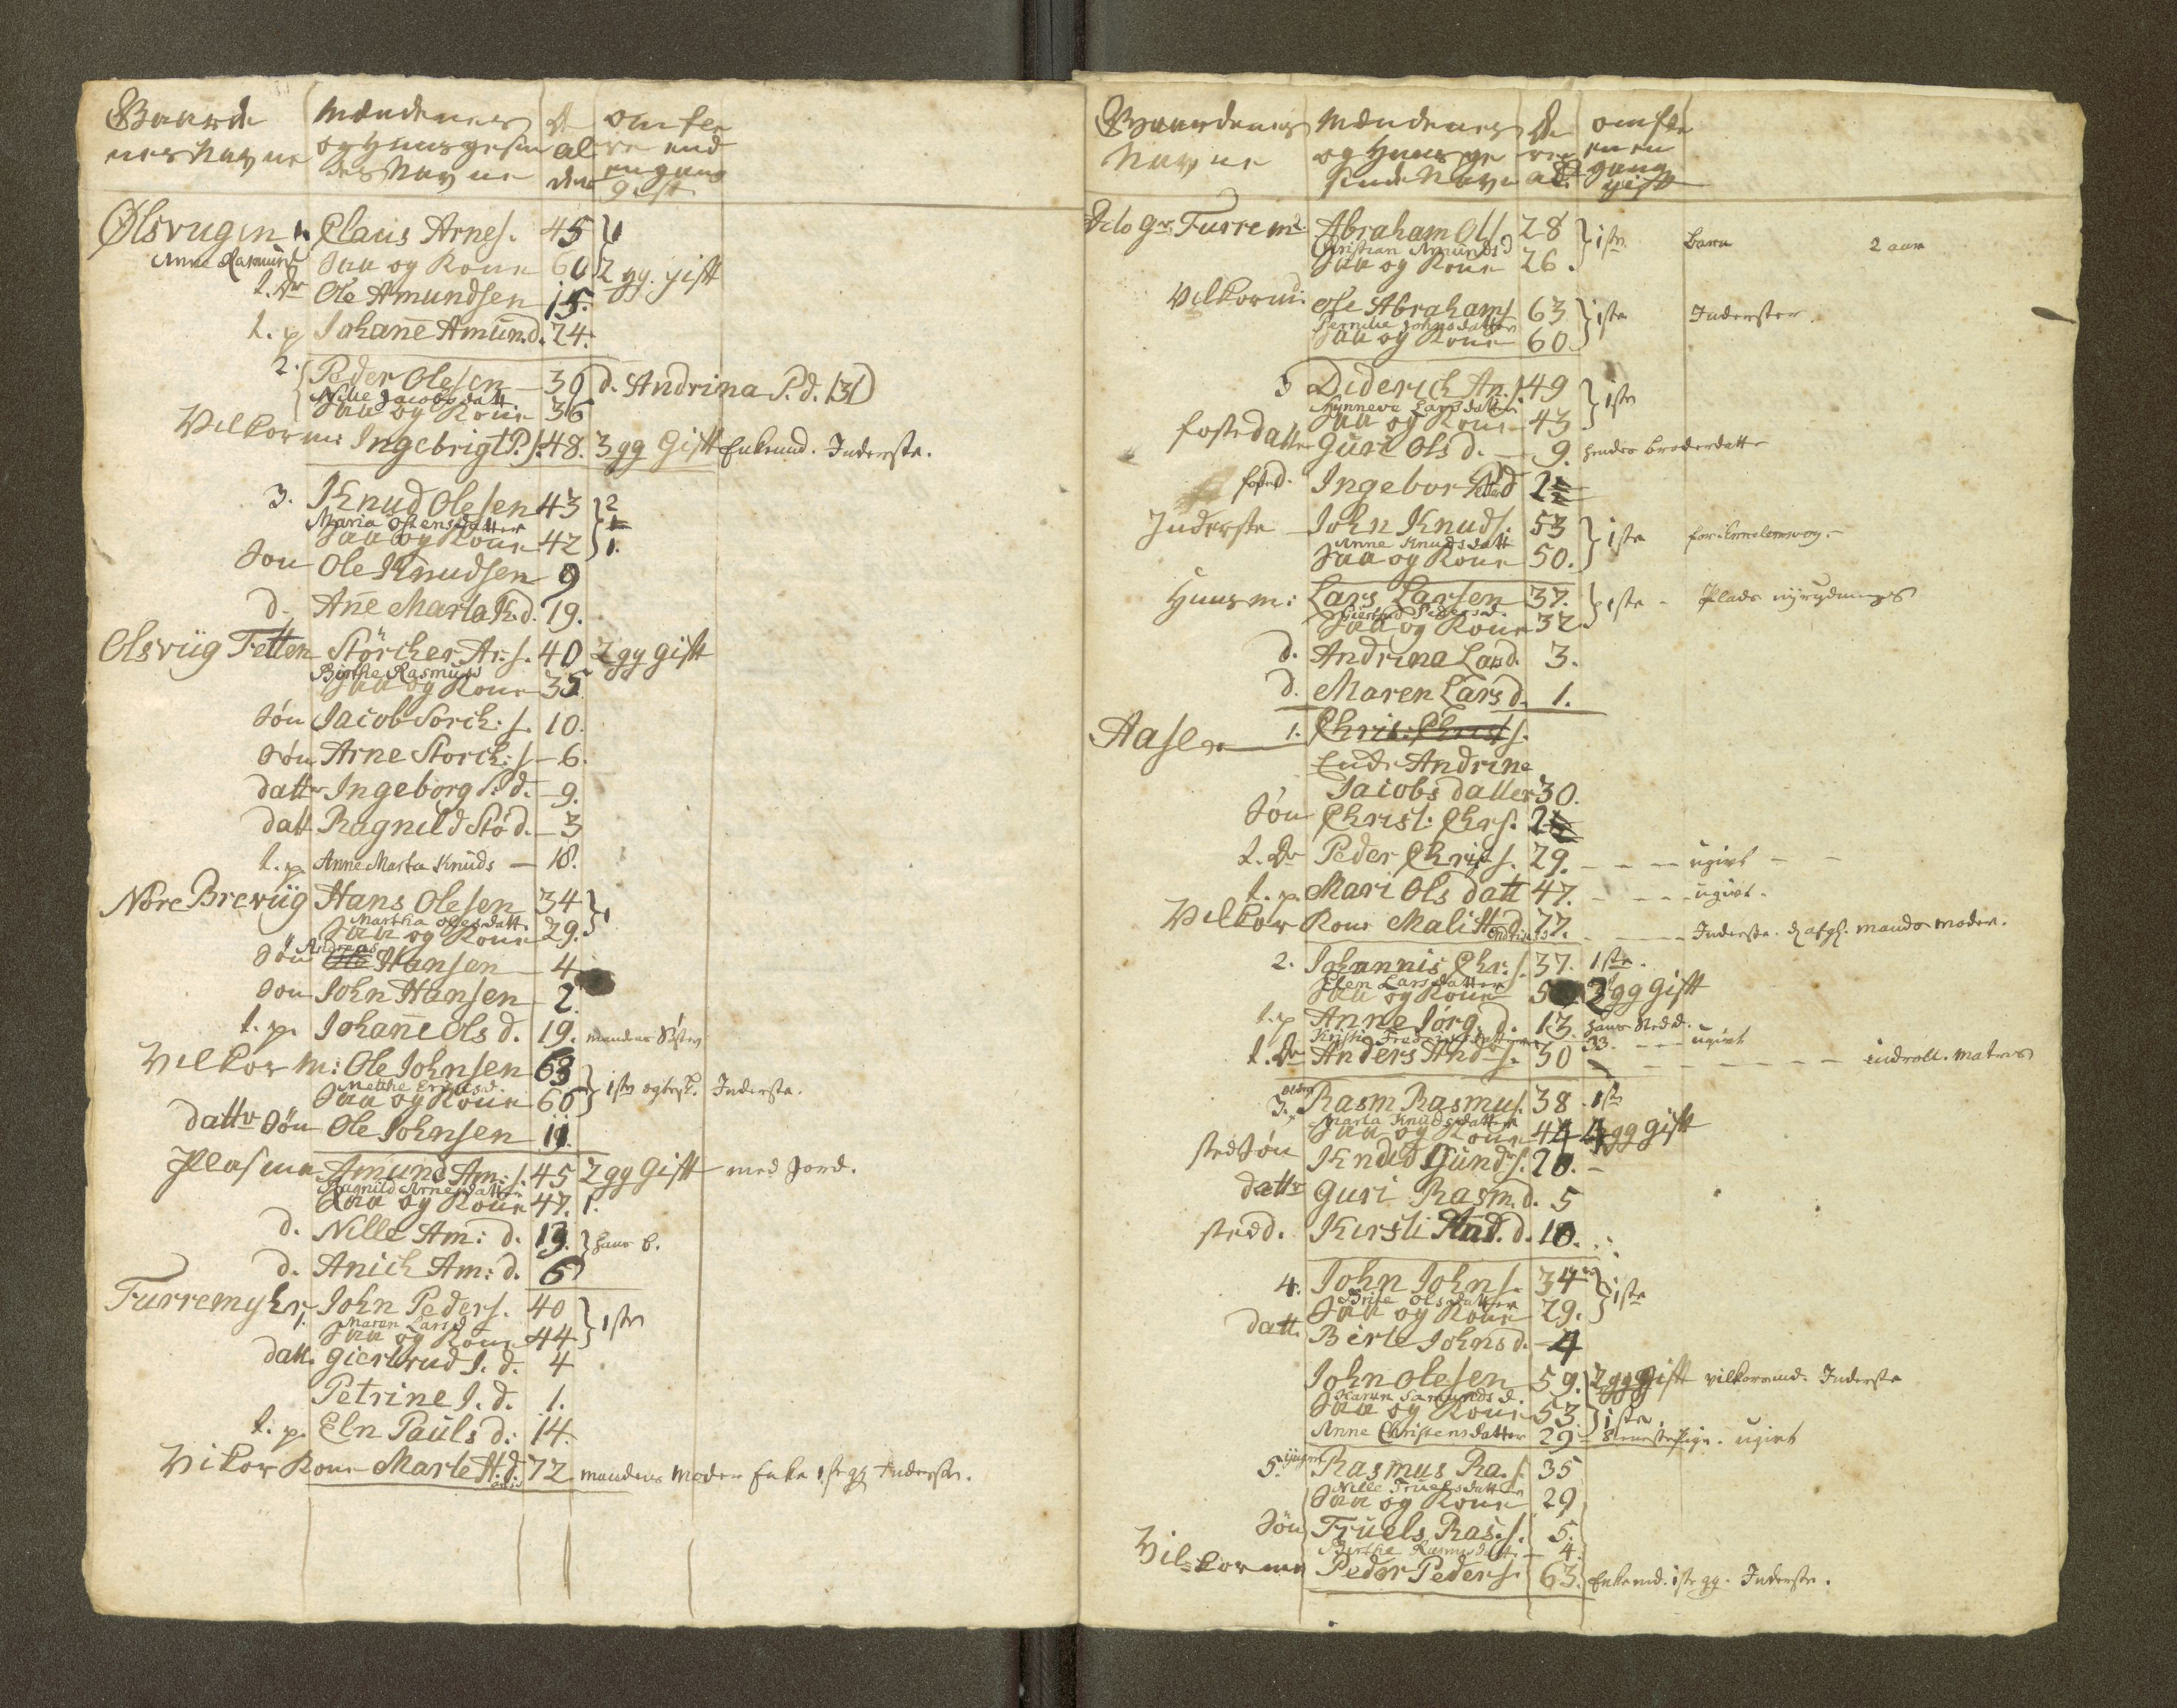 Gaarde Mændenes De om fle
nes Navne og Huusgesin al re end
des Navne der en gang
gift
Olsvugen 1. Claus Arnes. 45 } 1
Anne Rasmusd Saa og Kone 60 2 gg. gift
t. dr Ole Amundsen 15.
t. p Johane Amund. 24.
2. Peder Olesen 39 d. Andrina P.d. (3/1)
Nille Jacobsdatt.
Saa og Kone 36
Vilkorm: Ingebrigt P.s. 48. 3 gg Gift Enkemd. Inderste.
3. Knud Olesen 43 } 2
Maria Ostensdatter
Saa og Kone 42 1.
Søn Ole Knudsen 9
d. Ane Marta K.d. 19.
Olsviig Tetten Störcher Ar: s. 40 2 gg gift
Birthe Rasmusd
Saa og Kone 35
Søn Jacob Storch: s. 10.
Søn Arne Storch: s 6.
dattr Ingeborg S. d. 9.
datt Ragnild Sto d. 3
t. p. Anne Marta Knuds 18.
Nore Breviig Hans Olesen 34 } 1
Martha Olesdatt.
Saa og Kone 29.
Søn Andreas Hansen 4
Søn John Hansen 2.
t. p. Johane Ols d. 19. mandens Søster
Vilkor m: Ole Johnsen 63 } 1ste ægtesk. Inderste.
Mette
Saa og Kone 66
dattr Søn Ole Johnsen 11.
Plasma Amund Am: s. 45 2 gg Gift med Jord.
Ragnild Arnesdatter
Saa og Kone 47. 1.
d. Nille Am: d. 13. } hans b.
d. Anich Am: d. 6
Furremyhr 1. John Peders. 40 } 1ste
Maren Larsd
Saa og Kone 44
datt. Giertrud J. d. 4
Petrine J. d. 1.
t. p. Eln Pauls d: 14.
Vilkor Kone Marte H. d. 72 mandens Moder Enke 1ste gg Inderste.
Gaardenes Mændenes De om fle
Navne og Huusge res en en
sinde Navne al. gang
gift
Dito Gr Furrem. 2 Abraham Ols 28 } 1ste Barn 2 aar
Christian Amundsd
Saa og Kone 26.
Vilkorm: Ole Abrahams 63 } 1ste Inderster.
Pernille Johnsdatter
Saa og Kone 60
3 Diderich An. s. 49 } 1ste
Synneve Larsdatter
Saa og Kone 43
foste datter Guri Ols d. 9. hendes broderdatter
fosterd. Ingebor Petterd 2
Inderste John Knuds. 53 } 1ste
Anne Knudsdatt
Saa og Kone 50.
Huusm: Lars Larsen 37. } 1ste Plads nyrydnings
Giertrud Pedersd.
Saa og Kone 32
d. Andrina Lars d. 3.
d. Maren Lars d. 1.
Aasen 1. Chris: Chris s.
Enke Andrine
Jacobs datter 30.
Søn Christ. Chrs. 2
t. dr Peder Chris s. 29. ugivt
t. p. Mari Ols datt 47. ugivt.
Vilkor Kone Malist d. 77. Inderste. afg. mands moder.
2. Johannis Chr. s. 37. 1ste.
Elen Larsdatter
Saa og Kone 5 3 gg Gift
t. p Anne Jørg. d. 13. hans Sted d.
Kirsti 33. ugivt
t. dr Anders And s. 30 indroll. matros
3. Rasm Rasmus. 38 1ste
Marta Knudsdatter
Saa og Kone 44 4 gg Gift
sted Søn Knud Gunds. 20.
dattr Guri Rasm. d. 5
stedd. Kirsti And. d. 10.
4. John Johns. 34 } 1ste
Brite Olsdatter
Saa og Kone 29.
datt. Birte Johns d. 4
John Olesen 59. 2 gg Gift vilkormd. Inderste
Karen Samundsd.
Saa og Kone 53. } 1ste.
Anne Christensdatter 29 tienestepige. ugivt
5. yngere Rasmus Ra. s. 35
Nille Truelsdatter
Saa og Kone 29
Søn Truels Ras. s. 5.
Birthe Rasmusdatt. 4.
Vilkorma Peder Peders. 63. Enkemd. 1ste gg. Inderste.